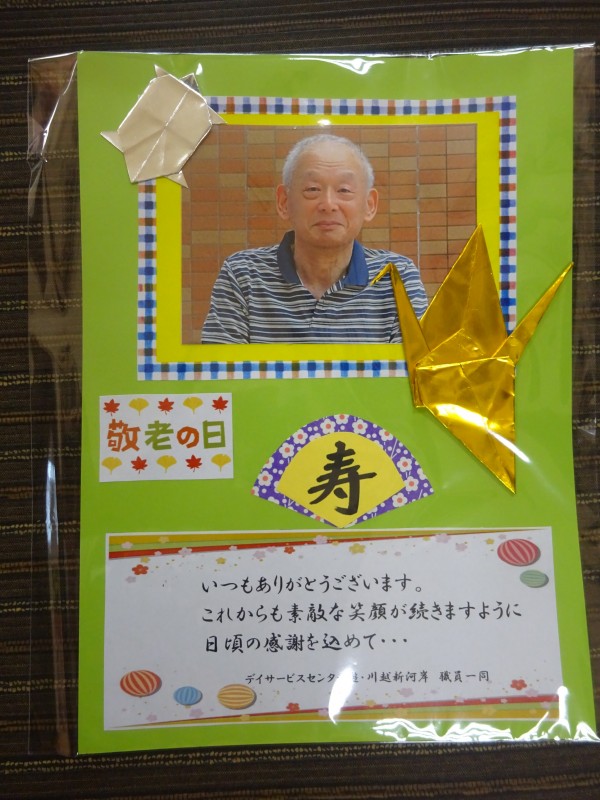 敬老の日
寿
いつもありがとうございます。
これからも素敵な笑顔が続きますように
日頃の感謝を込めて・・・
デイサービスセンター ・川越新河岸 職員一同